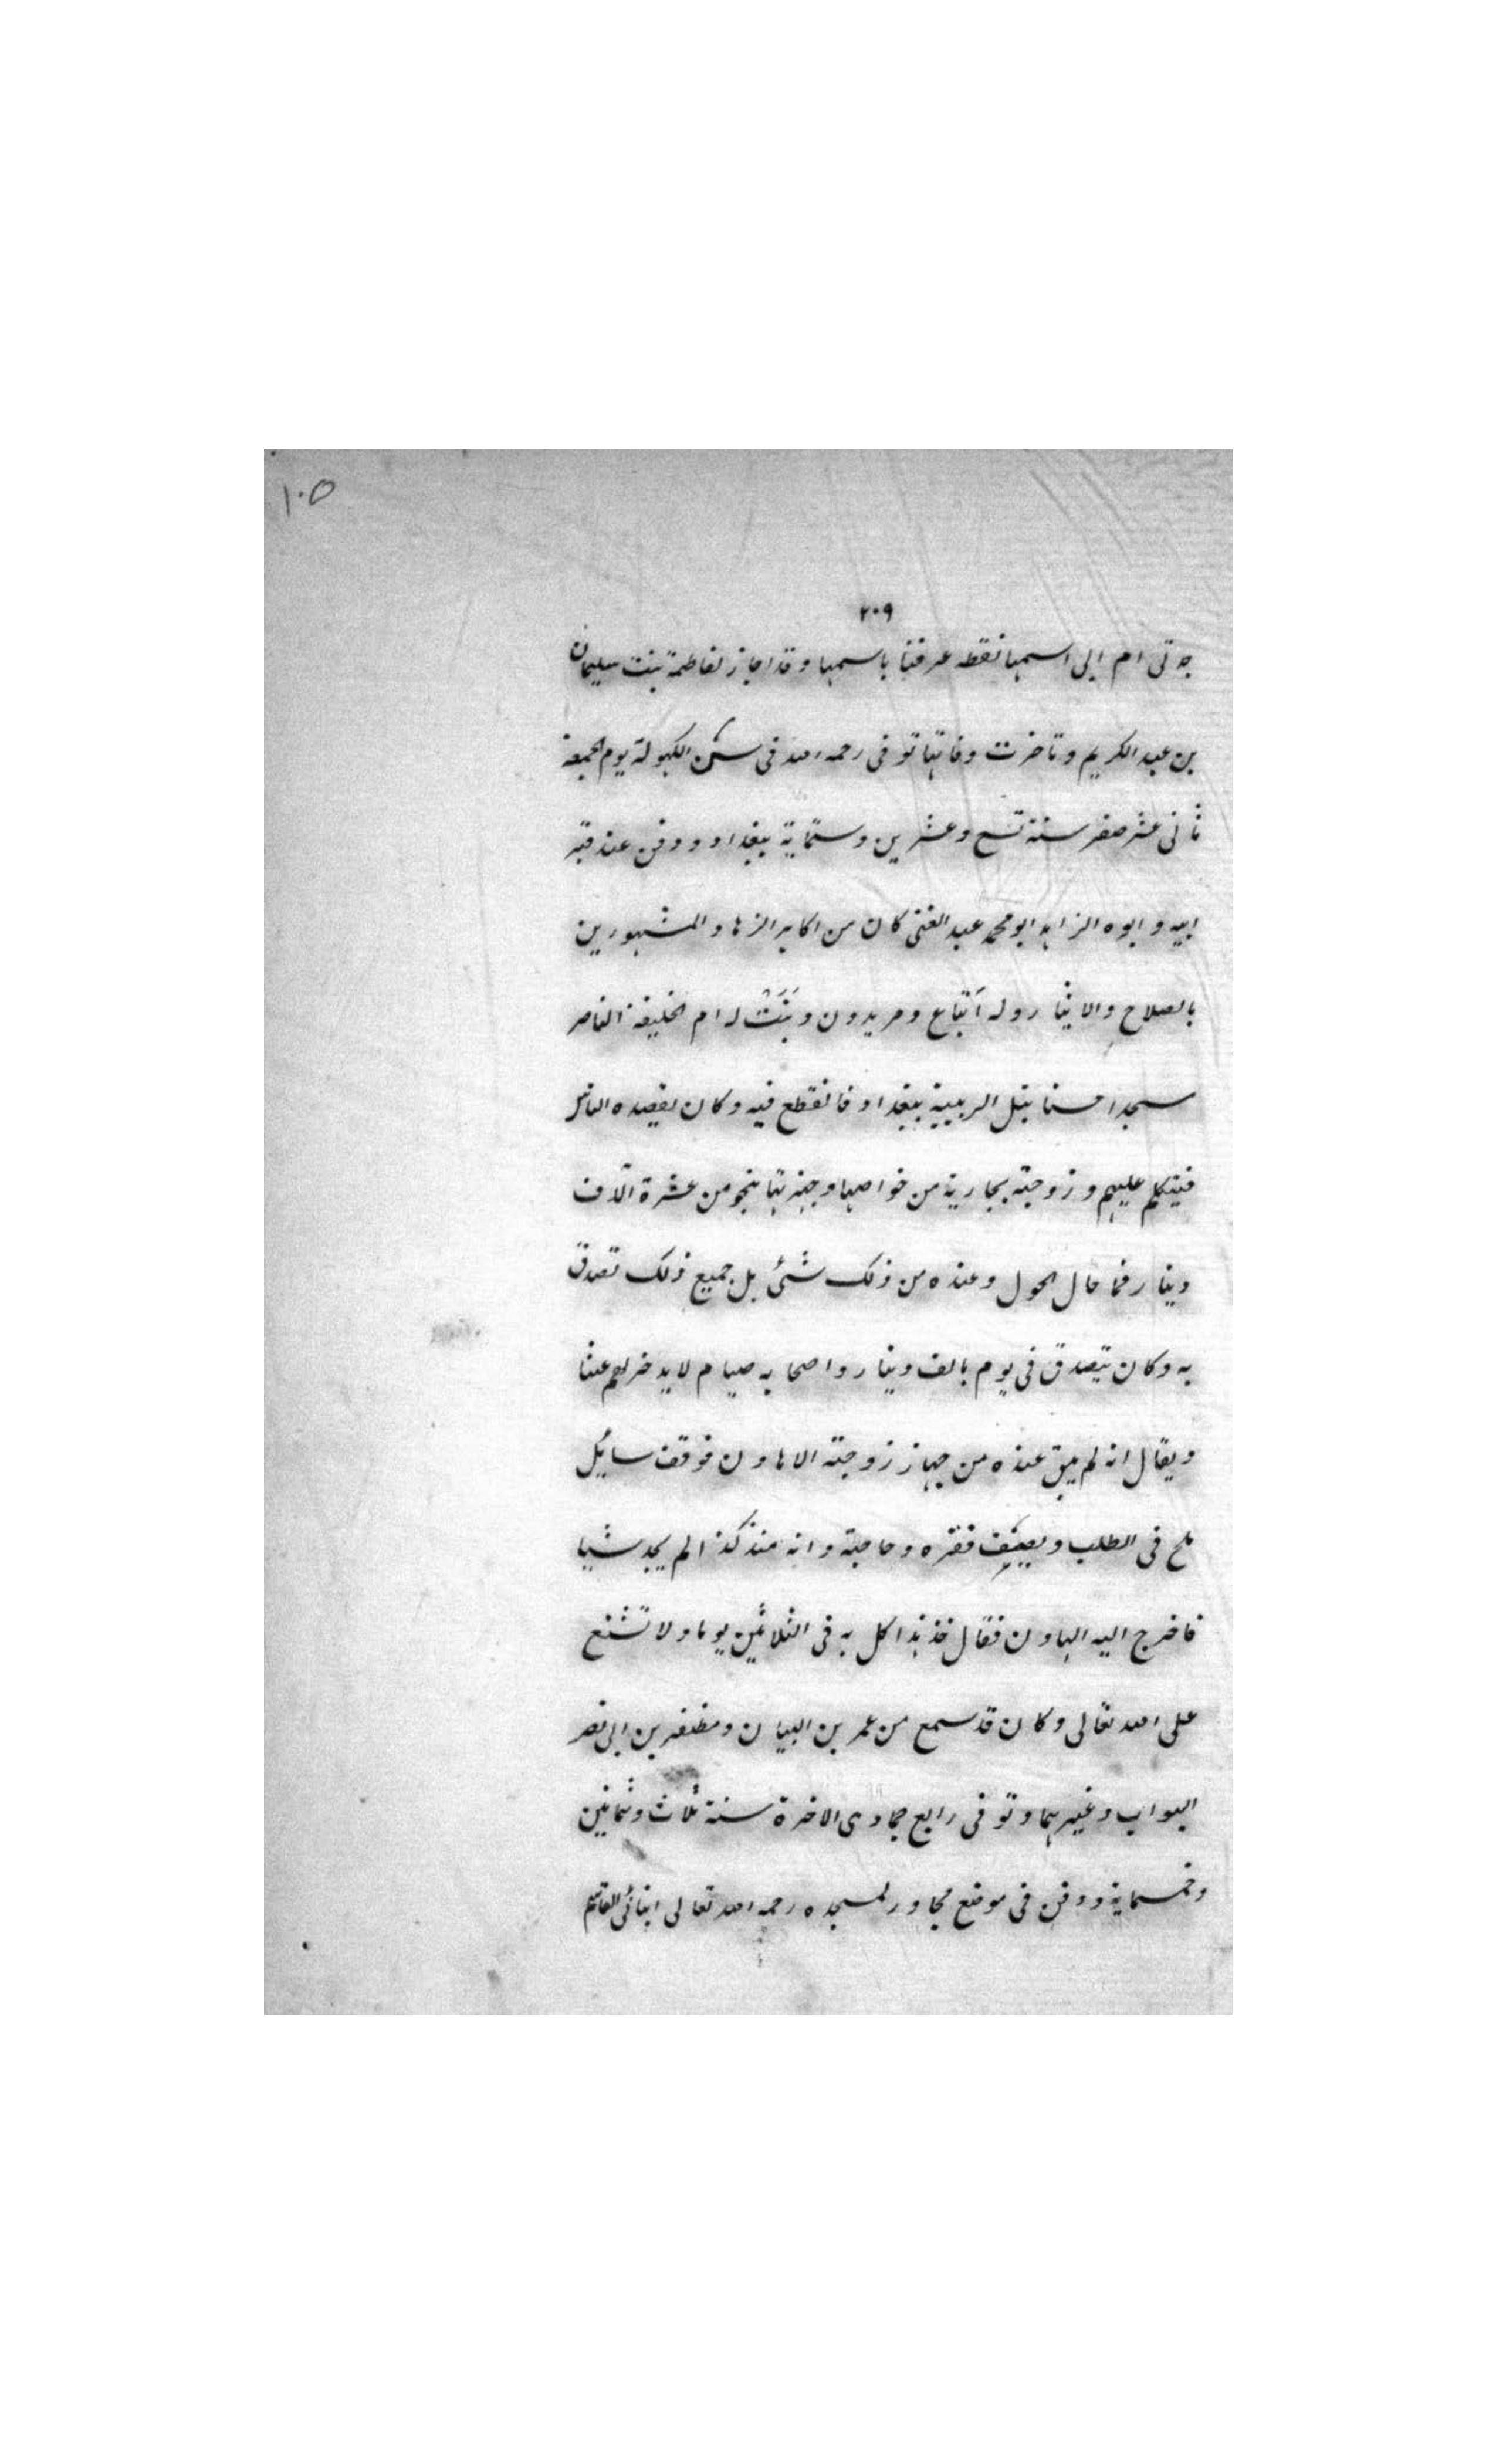 ١٠٥
٢٠٩
جدتى ام ابى اسمها نقطه عرفنا باسمها وقد اجاز لفاطمة بنت سليمان
بن عبد الكريم وتاخرت وفاتها توفى رحمه الله فى سن الكهولة يوم الجمعة
ثانى عشر صفر سنة تسع وعشرين وستماية ببغداد ودفن عند قبر
ابيه وابوه الزاهد ابو محمد عبد الغنى كان من اكابر الزهاد المشهورين
بالصلاح والايثار وله اتباع ومريدون وبَنَتْ له ام الخليفة الناصر
مسجدا حسنا بتل الزبيبية ببغداد فانقطع فيه وكان يقصده الناس
فيتكلم عليهم وزوجته بجارية من خواصها وجهزتها بنحو من عشرة آلاف
دينار فما حال الحول وعنده من ذلك شئ بل جميع ذلك تصدق
به وكان يتصدق فى يوم بالف دينار واصحابه صيام لا يدخر لهم عشا
ويقال انه لم يبق عنده من جهاز زوجته الا هاون فوقف سايل
يلح فى الطلب ويصف فقره وحاجته وانه منذ كذا لم يجد شيا
فاخرج اليه الهاون فقال خذ هذا كل به فى الثلاثين يوما ولا تشنع
على الله تعالى وكان قد سمع من عمر بن البيان ومظفر بن ابى نصر
البواب وغيرهما وتوفى رابع جمادى الاخرة سنة ثلاث وثمانين
وخمسماية ودفن فى موضع مجاور لمسجده رحمه الله تعالى القاسم